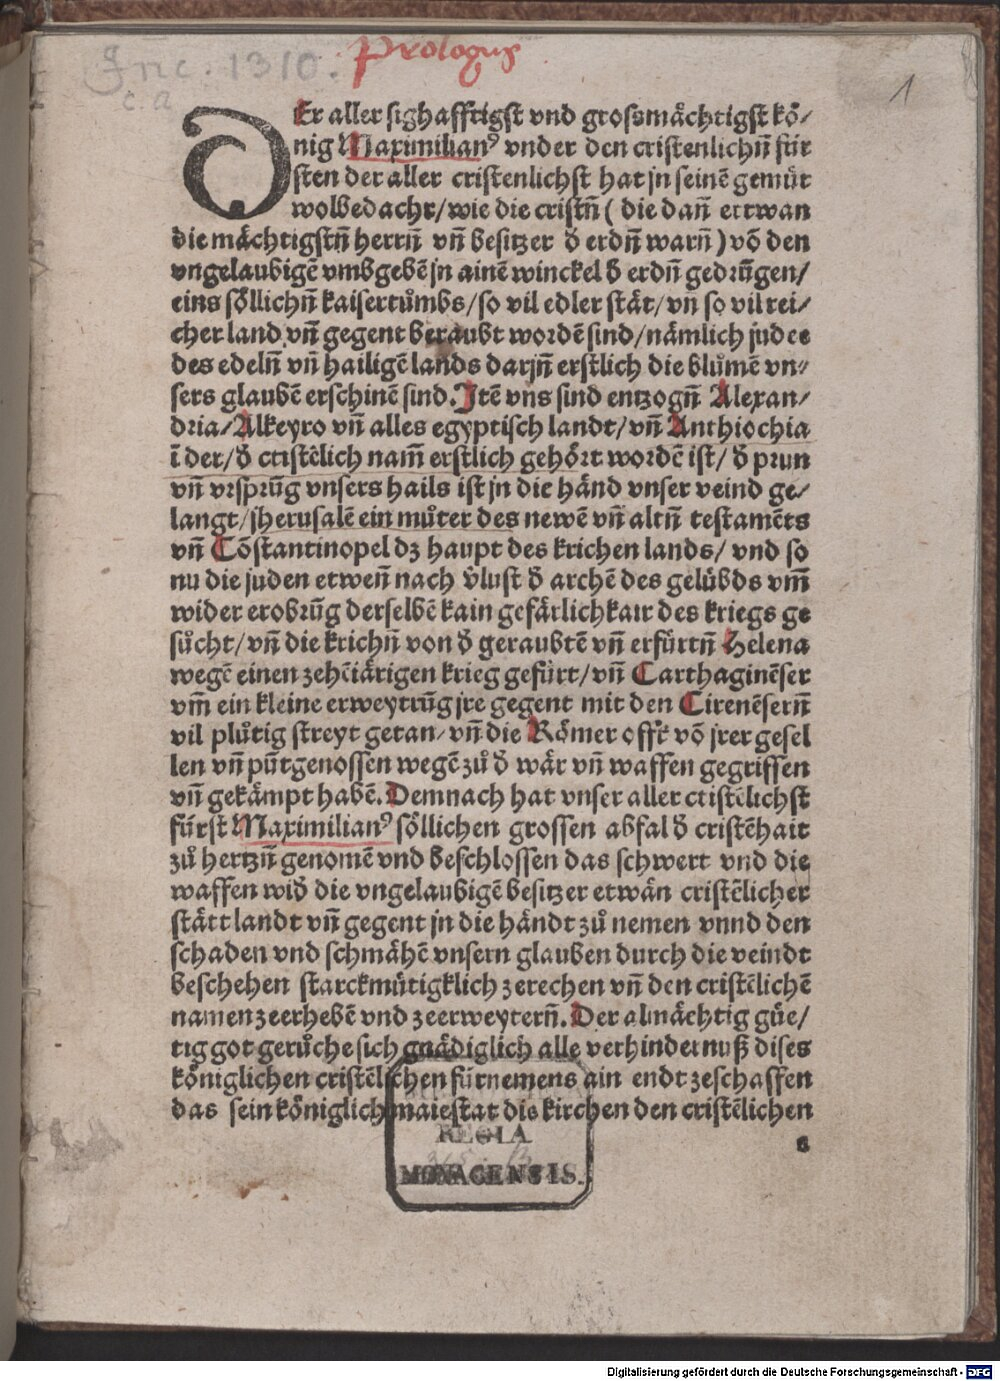 Prologus
Inc. 1310.
c. a
1
DEr aller sighafftigst vnd grossmåchtigst kö/
nig Maximilianꝰ vnder den cristenlichn̄ für
sten der aller cristenlichst hat jn seinē gemüt
wolbedacht/wie die cristn̄ ( die dan̄ ettwan
die måchtigstn̄ herrn̄ vn̄ besitzer đ erdn̄ warn̄ ) vō den
vngelaubigē vmbgebē jn ainē winckel đ erdn̄ gedrūgen/
eins söllichn̄ kaisertůmbs/so vil edler ståt/vn̄ so vil rei/
cher land vn̄ gegent beraubt wordē sind/nämlich judee
des edeln̄ vn̄ hailigē lands darjn̄ erstlich die blůmē vn/
sers glaubē erschinē sind. Jtē vns sind entzogn̄ Alexan/
dria/Alkeyro vn̄ alles egyptisch landt/vn̄ Anthiochia
ī der/đ cristēlich nam̄ erstlich gehört wordē ist/ đ prun
vn̄ vrsprūg vnsers hails ist jn die händ vnser veind ge/
langt/jherusalē ein můter des newē vn̄ altn̄ testamēts
vn̄ Cōstantinopel dz haupt des krichen lands/ vnd so
nu die juden etwen̄ nach v̄lust đ archē des gelübds vm̄
wider erobrūg derselbē kain gefärlichkait des kriegs ge
sůcht/vn̄ die krichn̄ von đ geraubtē vn̄ erfürtn̄ Helena
wegē einen zehēiärigen krieg gefürt/vn̄ Carthaginēser
vm̄ ein kleine erweytrūg jre gegent mit den Cirenēsern̄
vil plůtig streyt getan/vn̄ die Römer offt vō jrer gesel
len vn̄ pūtgenossen wegē zů đ wär vn̄ waffen gegriffen
vn̄ gekämpt habē. Demnach hat vnser aller cristēlichst
fürst Maximilianꝰ söllichen grossen abfal đ cristēhait
zů hertzn̄ genomē vnd beschlossen das schwert vnd die
waffen wiđ die vngelaubigē besitzer etwän cristēlicher
stätt landt vn̄ gegent jn die händt zů nemen vnnd den
schaden vnd schmähē vnsern glauben durch die veindt
beschehen starckmütigklich zerechen vn̄ den cristēlichē
namen zeerhebē vnd zeerweytern̄. Der almächtig güe/
tig got gerůche sich gnädiglich alle verhindernuß dises
königlichen cristēlichen fürnemens ain endt zeschaffen
das sein königlich maiestat die kirchen den cristēlichen
a
REGIA
MONACENSIS.
Digitalisierung gefördert durch die Deutsche Forschungsgemeinschaft - DFG